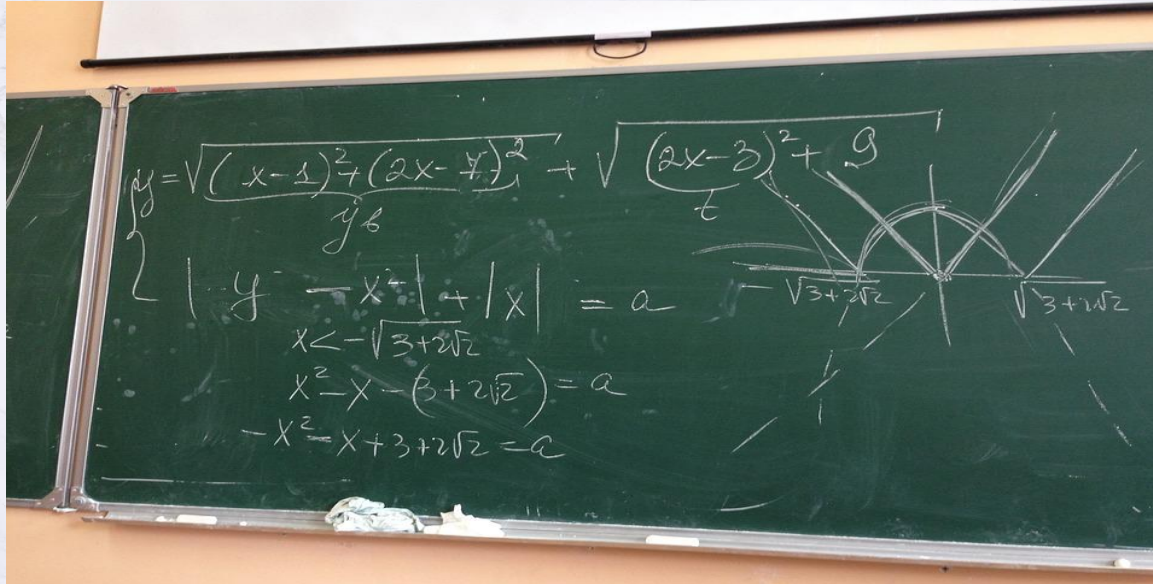 y = √((x-1)²+(2x-7)²) + √((2x-3)²+9)
t
| y - x² | + |x| = a
x < -√(3+2√2)
x² - x - (3+2√2) = a
-x² - x + 3+2√2 = a
-√(3+2√2)
√(3+2√2)